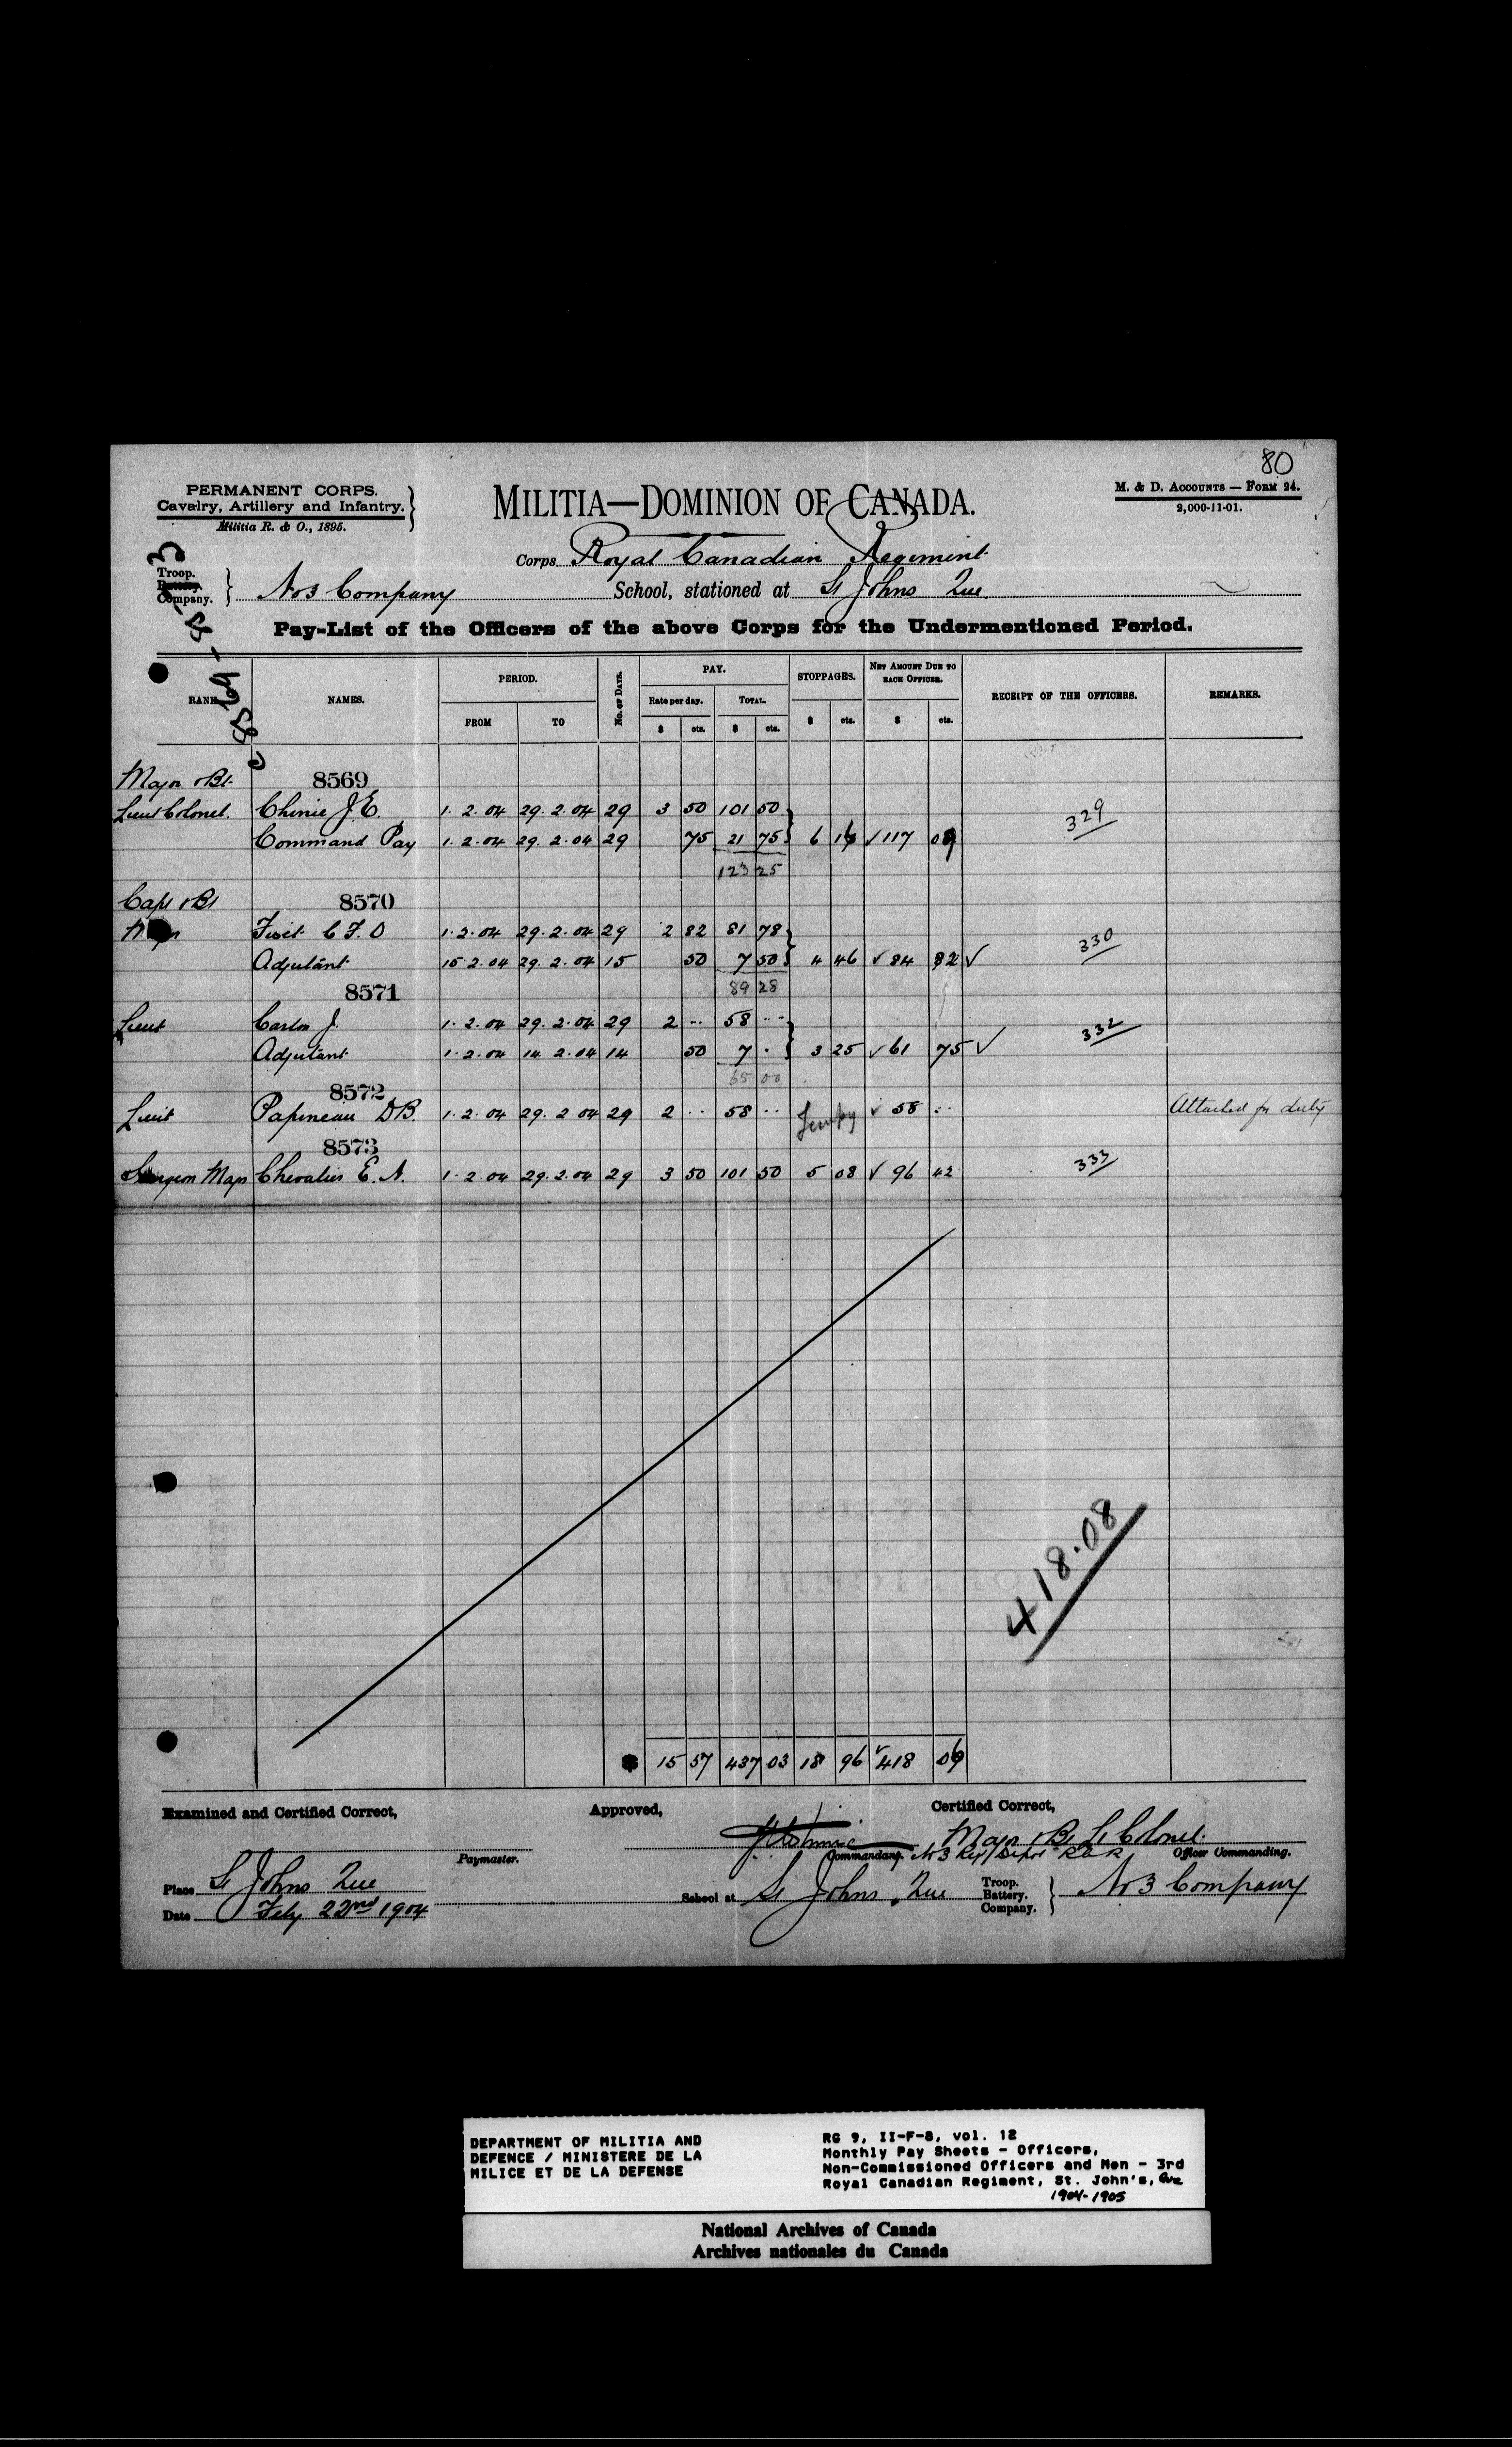 80
PERMANENT CORPS.
Cavalry, Artillery and Infantry.
Militia R. & O., 1895.
MILITIA—DOMINION OF CANADA.
M. & D. ACCOUNTS — FORM 24.
2,000-11-01.
Corps Royal Canadian Regiment
Troop.
Battery.
Company.
No 3 Company School, stationed at St Johns Que
Pay-List of the Officers of the above Corps for the Undermentioned Period.
RANK. NAMES. PERIOD. No. OF DAYS. PAY. STOPPAGES. NET AMOUNT DUE TO EACH OFFICER. RECEIPT OF THE OFFICERS. REMARKS.
FROM TO Rate per day. TOTAL.
$ cts. $ cts. $ cts. $ cts.
Major & Bt. 8569
Lieut Colonel. Chinic J. E. 1. 2. 04 29. 2. 04 29 3 50 101 50
Command Pay 1. 2. 04 29. 2. 04 29 75 21 75 6 16 117 09 329
123 25
Capt & Bt 8570
C F. O 1. 2. 04 29. 2. 04 29 2 82 81 78
Adjutant 15. 2. 04 29. 2. 04 15 50 7 50 4 46 84 82 330
8571 89 28
Lieut J. 1. 2. 04 29. 2. 04 29 2 .. 58 ..
Adjutant 1. 2. 04 14. 2. 04 14 50 7 . 3 25 61 75 332
65 00
8572
Lieut Papineau D B. 1. 2. 04 29. 2 04 29 2 .. 58 .. 58 .. Attached for duty
8573
Surgeon Major Chevalier E. A. 1. 2. 04 29. 2. 04 29 3 50 101 50 5 08 96 42 333
418.08
$ 15 57 437 03 18 96 418 09
Examined and Certified Correct, Approved, Certified Correct,
Major & Bt Lt Colonel
Paymaster. Commandant. No 3 Regt Depot R C R Officer Commanding.
Place St Johns Que School at St Johns, Que Troop.
Battery.
Company.
No 3 Company
Date Feby 22nd 1904
DEPARTMENT OF MILITIA AND
DEFENCE / MINISTERE DE LA
MILICE ET DE LA DEFENSE
RG 9, II-F-8, vol. 12
Monthly Pay Sheets - Officers,
Non-Commissioned Officers and Men - 3rd
Royal Canadian Regiment, St. John's, Que
1904-1905
National Archives of Canada
Archives nationales du Canada